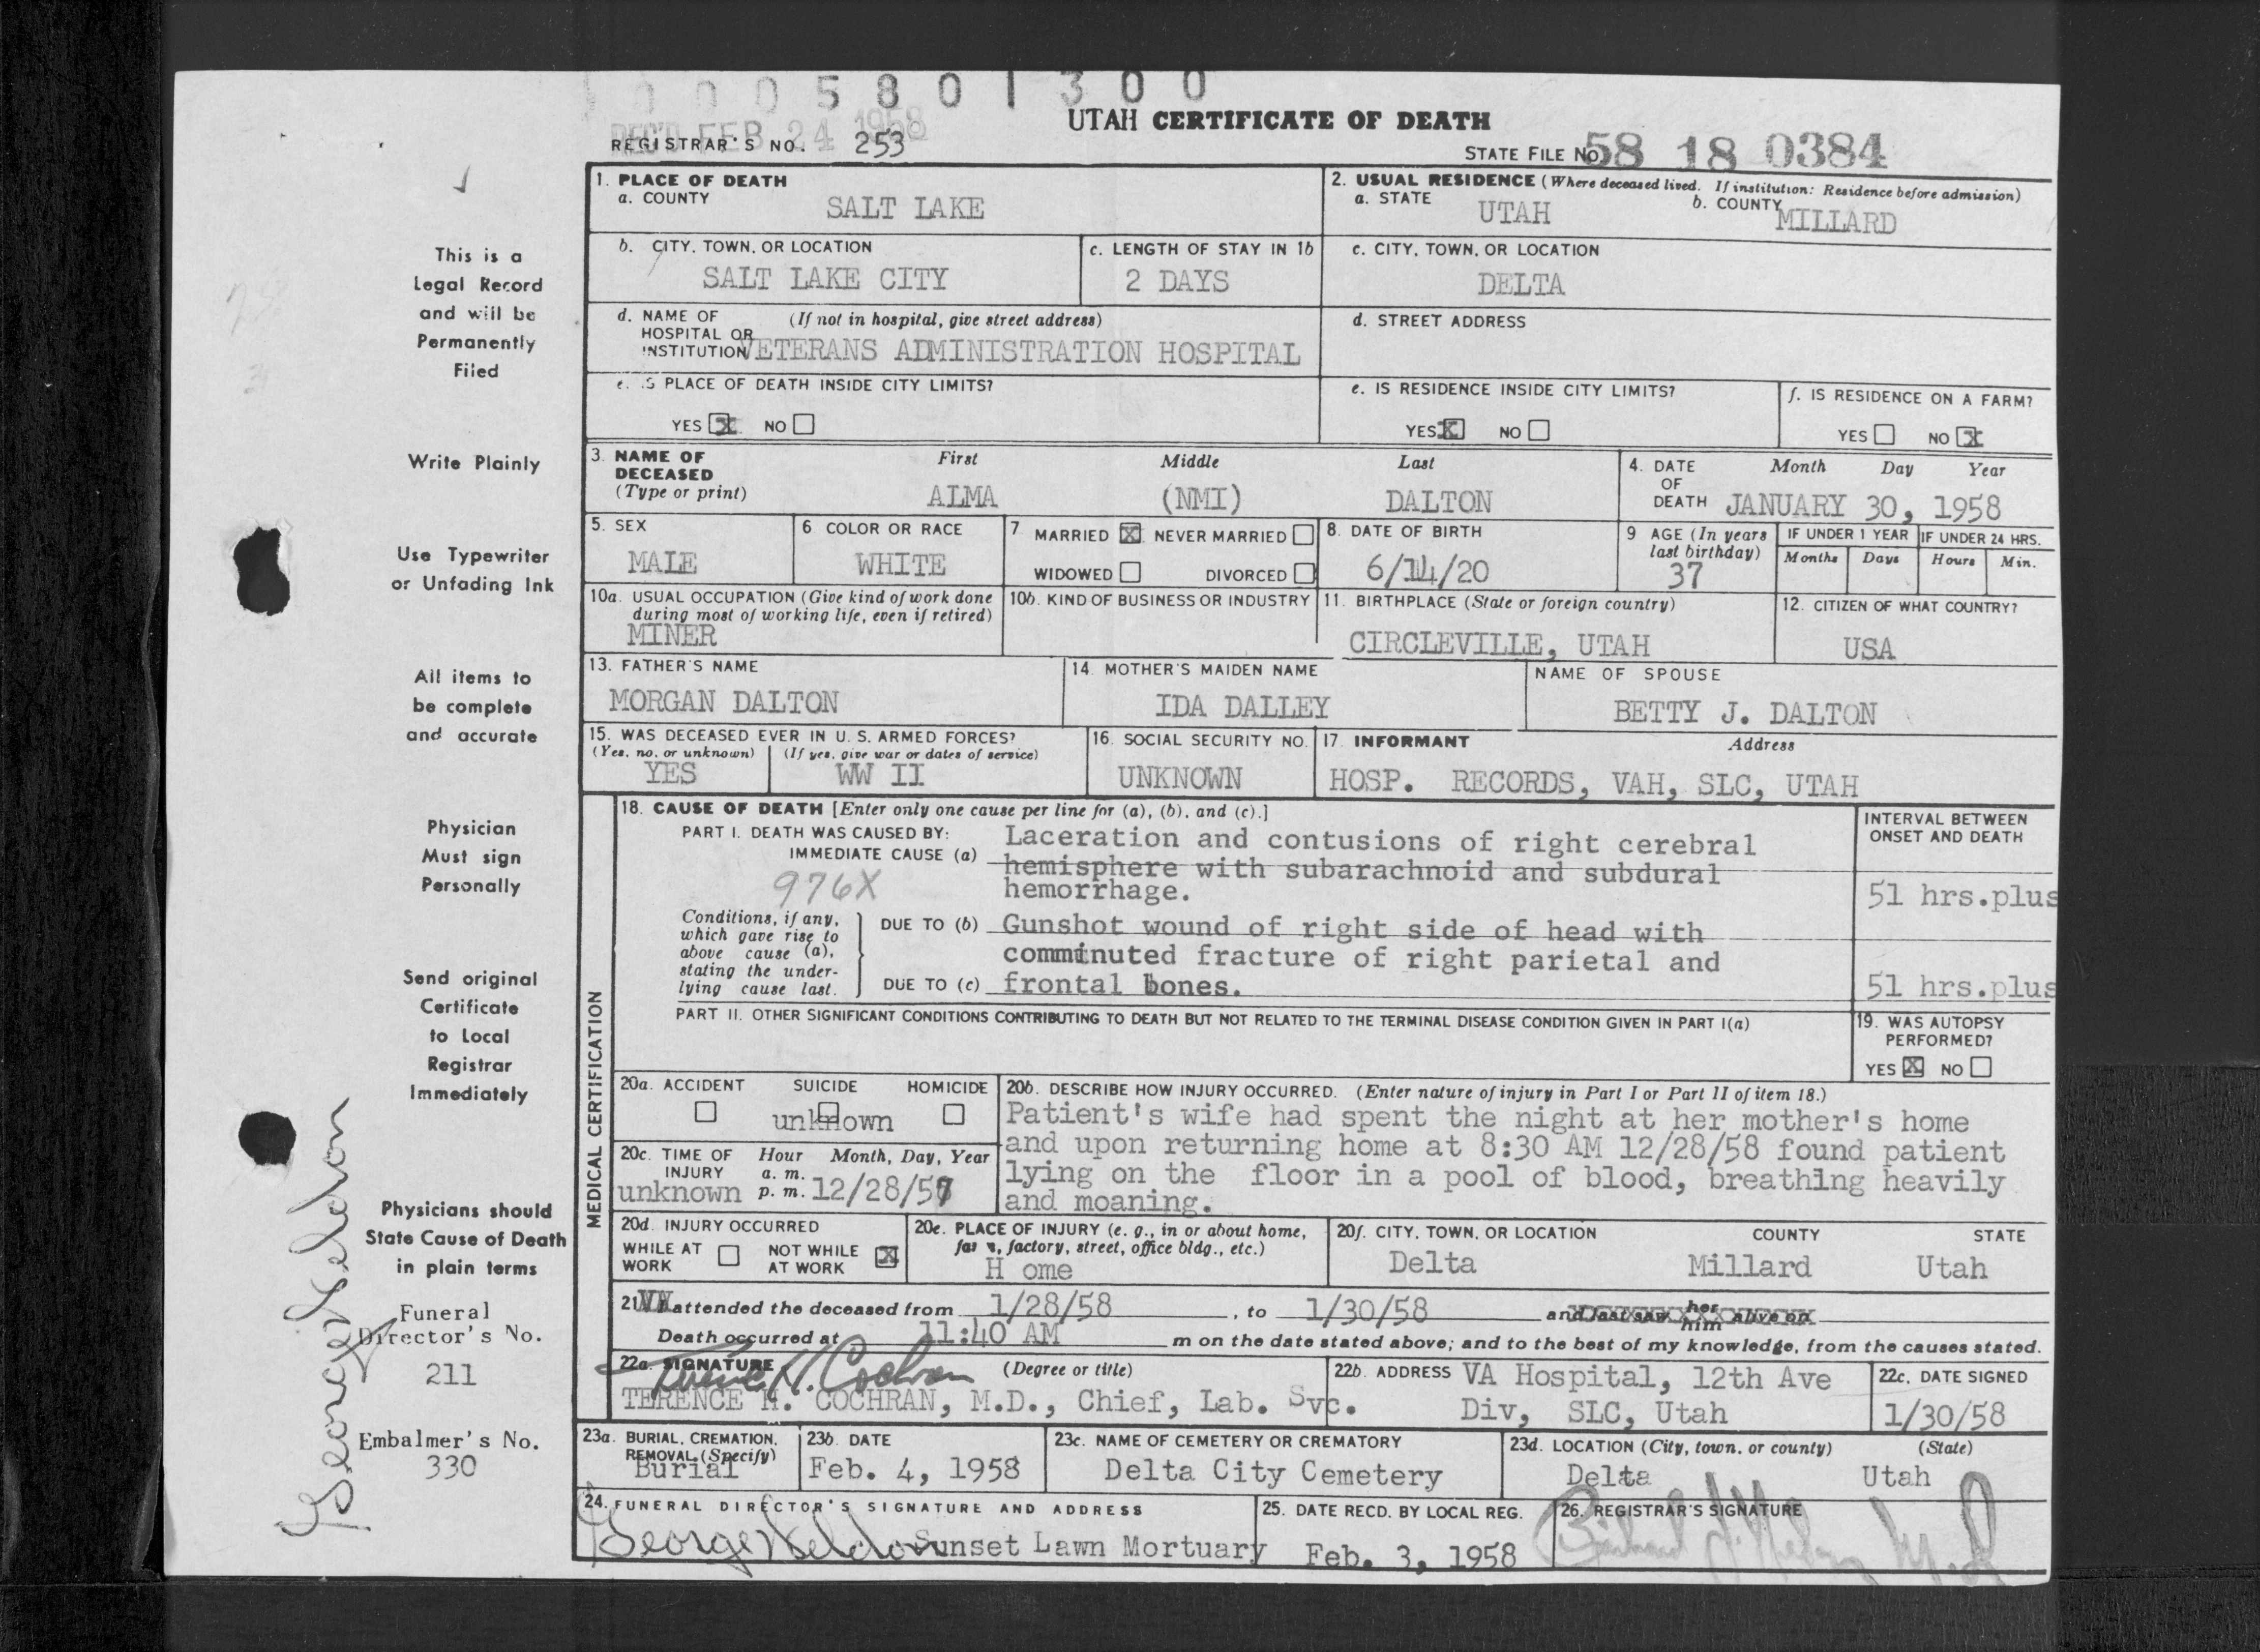 0005801300
REC'D FEB 24 1958
UTAH CERTIFICATE OF DEATH
REGISTRAR'S NO. 253
STATE FILE No 58 18 0384
This is a
Legal Record
and will be
Permanently
Filed
Write Plainly
Use Typewriter
or Unfading Ink
All items to
be complete
and accurate
Physician
Must sign
Personally
Send original
Certificate
to Local
Registrar
Immediately
Physicians should
State Cause of Death
in plain terms
Funeral
Director's No.
211
Embalmer's No.
330
1. PLACE OF DEATH
a. COUNTY
SALT LAKE
2. USUAL RESIDENCE (Where deceased lived. If institution: Residence before admission)
a. STATE UTAH b. COUNTY MILLARD
b. CITY, TOWN, OR LOCATION
SALT LAKE CITY
c. LENGTH OF STAY IN 1b
2 DAYS
c. CITY, TOWN, OR LOCATION
DELTA
d. NAME OF (If not in hospital, give street address)
HOSPITAL OR
INSTITUTION VETERANS ADMINISTRATION HOSPITAL
d. STREET ADDRESS
e. IS PLACE OF DEATH INSIDE CITY LIMITS?
YES X NO
e. IS RESIDENCE INSIDE CITY LIMITS?
YES X NO
f. IS RESIDENCE ON A FARM?
YES NO X
3. NAME OF
DECEASED
(Type or print)
First Middle Last
ALMA (NMI) DALTON
4. DATE
OF
DEATH
Month Day Year
JANUARY 30, 1958
5. SEX
MALE
6 COLOR OR RACE
WHITE
7 MARRIED X NEVER MARRIED
WIDOWED DIVORCED
8. DATE OF BIRTH
6/14/20
9 AGE (In years
last birthday)
37
IF UNDER 1 YEAR
Months Days
IF UNDER 24 HRS.
Hours Min.
10a. USUAL OCCUPATION (Give kind of work done
during most of working life, even if retired)
MINER
10b. KIND OF BUSINESS OR INDUSTRY
11. BIRTHPLACE (State or foreign country)
CIRCLEVILLE, UTAH
12. CITIZEN OF WHAT COUNTRY?
USA
13. FATHER'S NAME
MORGAN DALTON
14. MOTHER'S MAIDEN NAME
IDA DALLEY
NAME OF SPOUSE
BETTY J. DALTON
15. WAS DECEASED EVER IN U. S. ARMED FORCES?
(Yes, no, or unknown) (If yes, give war or dates of service)
YES WW II
16. SOCIAL SECURITY NO.
UNKNOWN
17. INFORMANT Address
HOSP. RECORDS, VAH, SLC, UTAH
MEDICAL CERTIFICATION
18. CAUSE OF DEATH [Enter only one cause per line for (a), (b), and (c).]
PART I. DEATH WAS CAUSED BY:
IMMEDIATE CAUSE (a)
Laceration and contusions of right cerebral
hemisphere with subarachnoid and subdural
hemorrhage.
976X
INTERVAL BETWEEN
ONSET AND DEATH
51 hrs.plus
Conditions, if any,
which gave rise to
above cause (a),
stating the under-
lying cause last.
DUE TO (b) Gunshot wound of right side of head with
comminuted fracture of right parietal and
DUE TO (c) frontal bones.
51 hrs.plus
PART II. OTHER SIGNIFICANT CONDITIONS CONTRIBUTING TO DEATH BUT NOT RELATED TO THE TERMINAL DISEASE CONDITION GIVEN IN PART I(a)
19. WAS AUTOPSY
PERFORMED?
YES X NO
20a. ACCIDENT SUICIDE HOMICIDE
unknown
20b. DESCRIBE HOW INJURY OCCURRED. (Enter nature of injury in Part I or Part II of item 18.)
Patient's wife had spent the night at her mother's home
and upon returning home at 8:30 AM 12/28/58 found patient
lying on the floor in a pool of blood, breathing heavily
and moaning.
20c. TIME OF
INJURY
Hour Month, Day, Year
a. m.
unknown p. m. 12/28/57
20d. INJURY OCCURRED
WHILE AT
WORK
NOT WHILE
AT WORK X
20e. PLACE OF INJURY (e. g., in or about home,
farm, factory, street, office bldg., etc.)
H ome
20f. CITY, TOWN, OR LOCATION COUNTY STATE
Delta Millard Utah
21. attended the deceased from 1/28/58, to 1/30/58 and last saw her him alive on
Death occurred at 11:40 AM m on the date stated above; and to the best of my knowledge, from the causes stated.
22a. SIGNATURE (Degree or title)
Terence H. Cochran
TERENCE H. COCHRAN, M.D., Chief, Lab. Svc.
22b. ADDRESS VA Hospital, 12th Ave
Div, SLC, Utah
22c. DATE SIGNED
1/30/58
23a. BURIAL, CREMATION,
REMOVAL (Specify)
Burial
23b. DATE
Feb. 4, 1958
23c. NAME OF CEMETERY OR CREMATORY
Delta City Cemetery
23d. LOCATION (City, town, or county) (State)
Delta Utah
24. FUNERAL DIRECTOR'S SIGNATURE AND ADDRESS
Sunset Lawn Mortuary
25. DATE RECD. BY LOCAL REG.
Feb. 3, 1958
26. REGISTRAR'S SIGNATURE